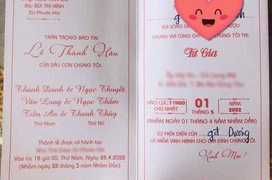 BÙI THỊ HÌNH
TRÂN TRỌNG BÁO TIN
Lê Thành Hôn
CỦA CON CHÚNG TÔI:
Thành Danh & Ngọc Thuyết
Văn Long & Ngọc Thắm
Tiến An & Thanh Thủy
Thứ Nam
Thứ Nữ
Thánh lễ được cử hành tại:
Vào lúc 18 giờ 00, Thứ Năm, Ngày 28.4.2022
(Nhằm ngày 28 tháng 3 năm Nhâm Dần)
CHUNG VUI CÙNG
CHÚNG TÔI TẠI:
Tư Gia
VÀO LÚC 11H00
CHỦ NHẬT
01
THÁNG
5
NĂM
2022
(NHẰM NGÀY 01 THÁNG 4 NĂM NHÂM DẦN)
SỰ HIỆN DIỆN CỦA gđ Dương
LÀ NIỀM VINH HẠNH CHO GIA ĐÌNH CHÚNG TÔI.
Kính Mời